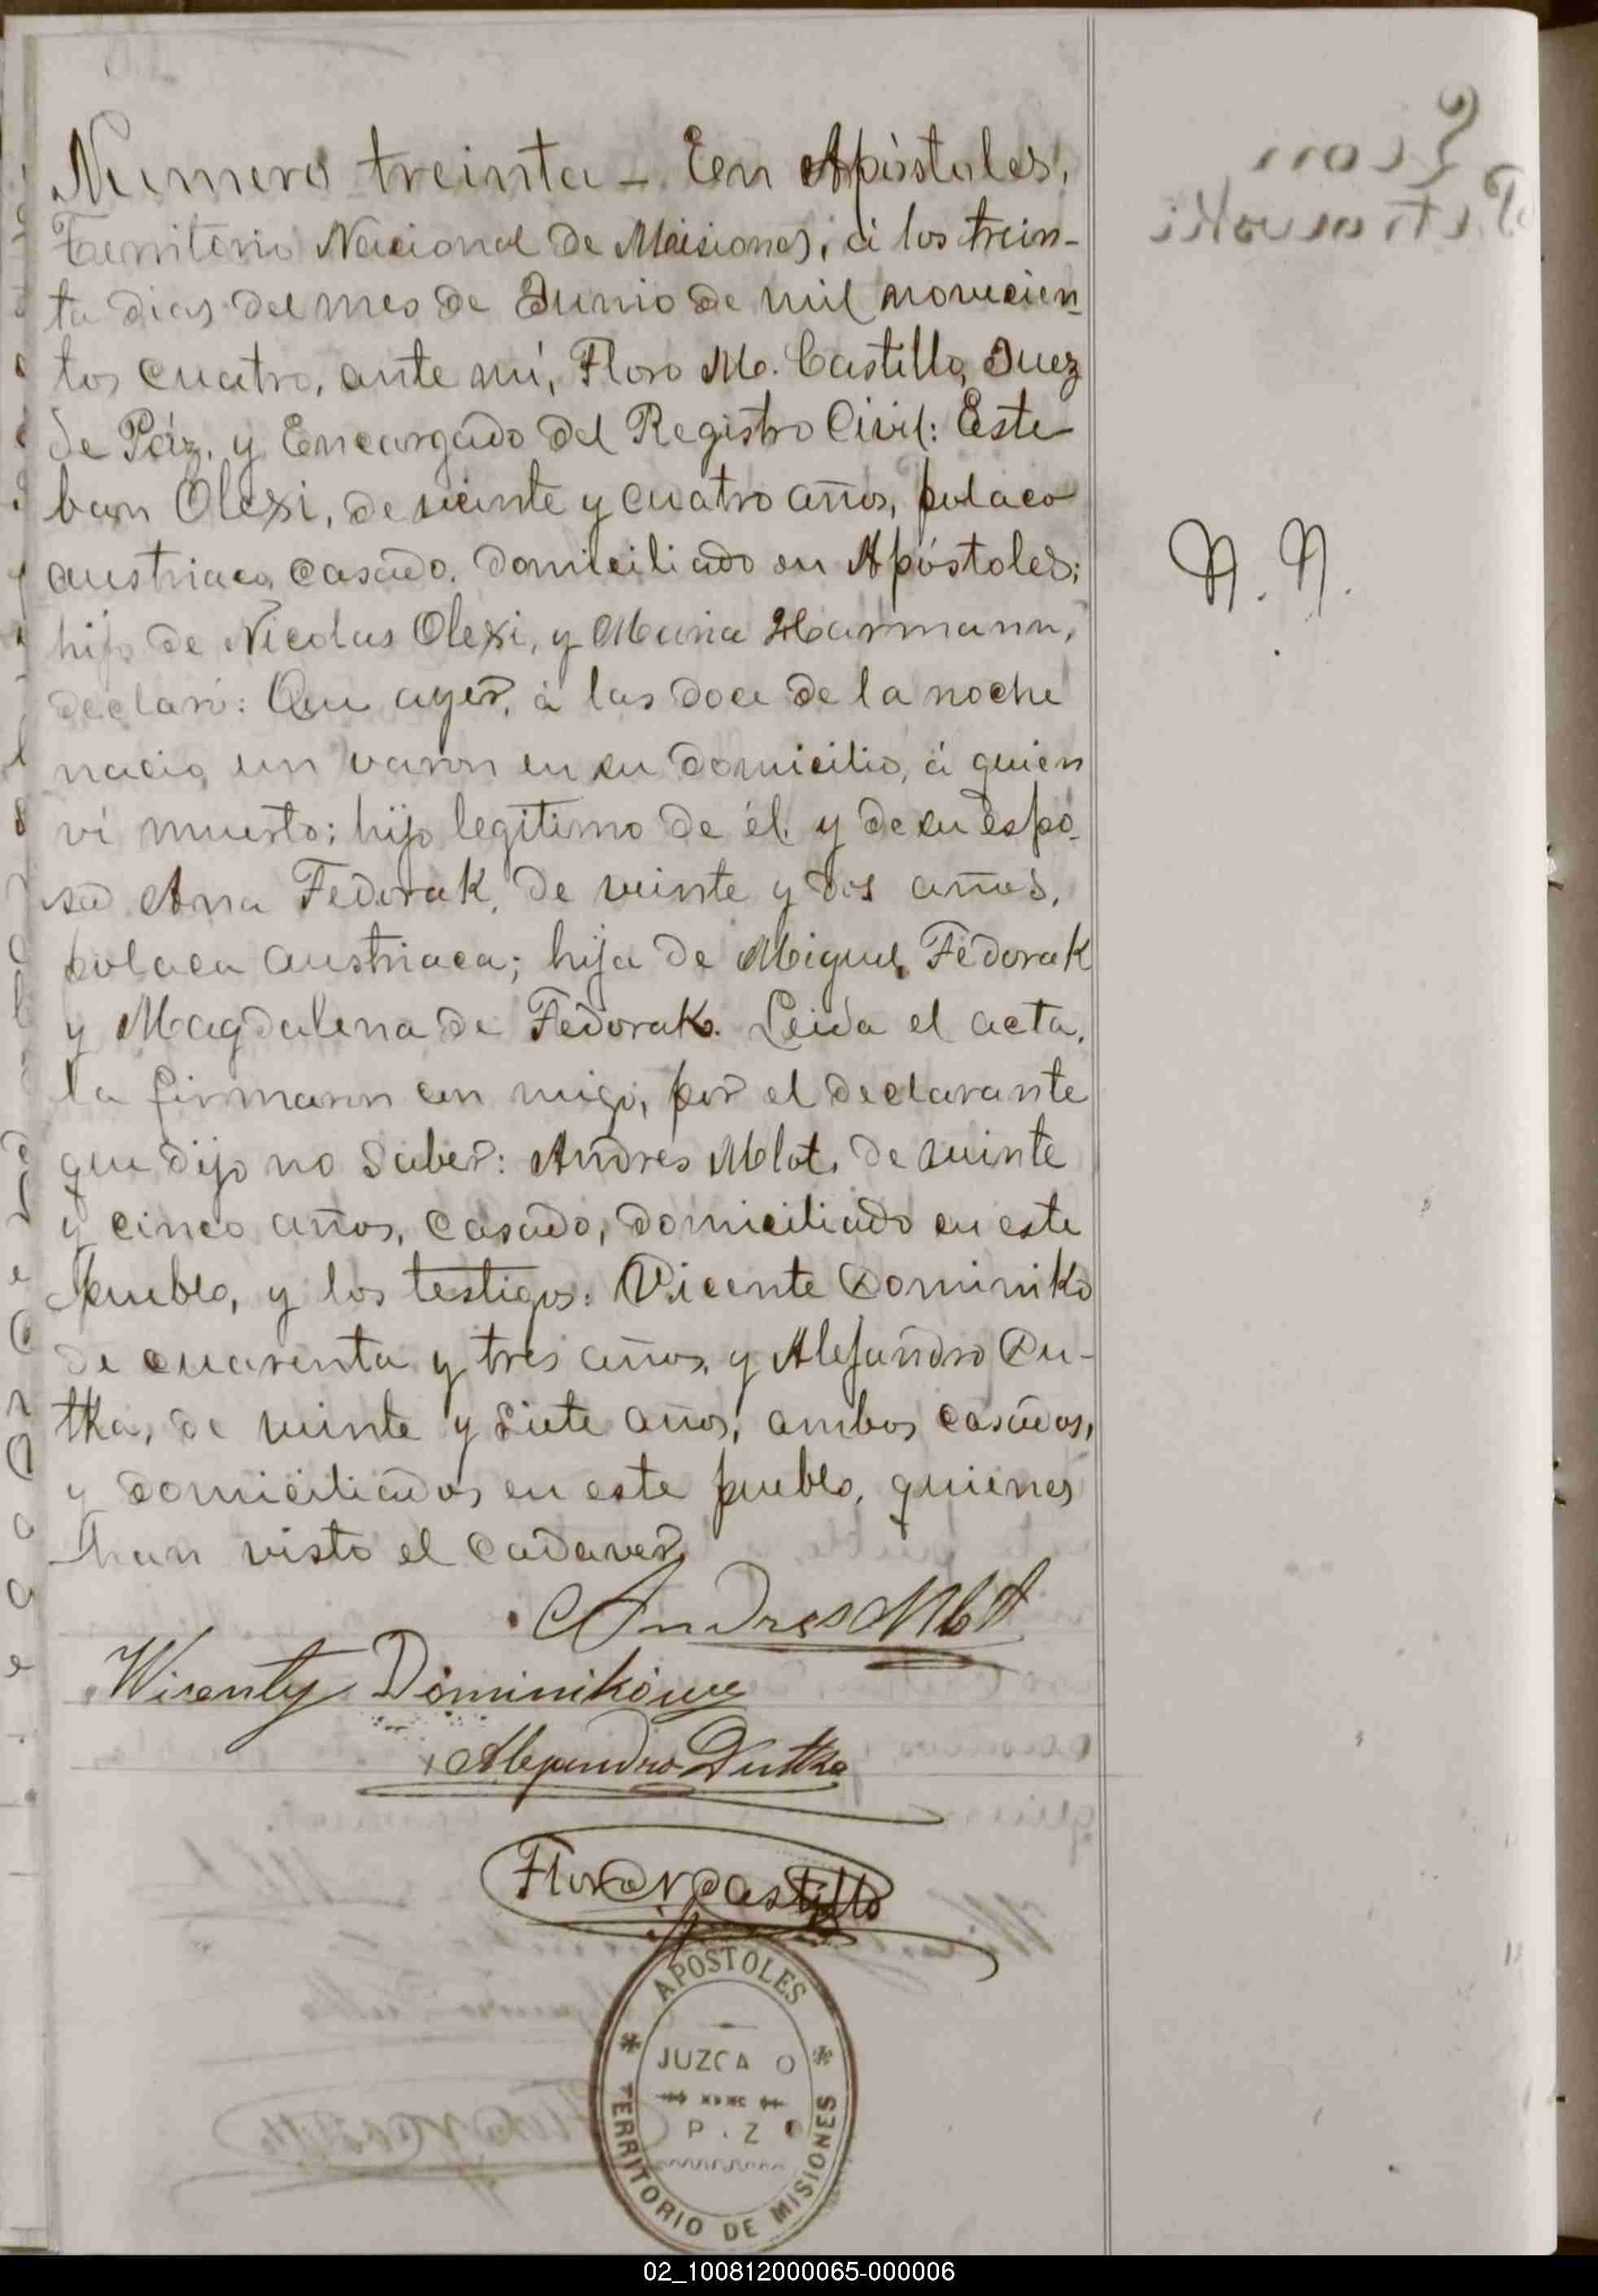 Numero treinta — En Apóstoles,
Territorio Nacional de Misiones, á los trein-
ta dias del mes de Junio de mil novecien-
tos cuatro, ante mí, Floro M. Castillo, Juez
de Páz, y Encargado del Registro Civil: Este
ban Olexi, de veinte y cuatro años, polaco
austriaco, casado, domiciliado en Apóstoles;
hijo de Nicolas Olexi, y Maria Harmann,
declaró: Que ayer, á las doce de la noche
nació, un varon en su domicilio, á quien
ví muerto; hijo legítimo de él, y de su espo-
sa Ana Fedorak, de veinte y dos años,
polaca austriaca; hija de Miguel Fedorak
y Magdalena de Fedorak. Leida el acta,
la firmaron con migo, por el declarante
que dijo no saber: Andres Mlot, de veinte
y cinco años, casado, domiciliado en este
pueblo, y los testigos: Vicente Dominiko
de cuarenta y tres años, y Alejandro Du-
tka, de veinte y siete años, ambos casados,
y domiciliados en este pueblo, quienes
han visto el cadaver.
N. N.
Andres Mlot
Wicenty Dominikowy
Alejandro Dutka
Floro M Castillo
APOSTOLES
JUZCA O
P . Z
TERRITORIO DE MISIONES
02_100812000065-000006